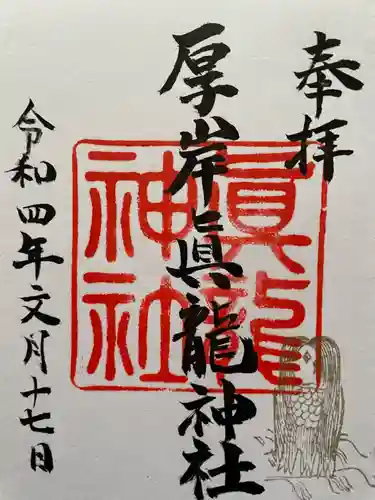 奉拝
厚岸眞龍神社
眞龍神社
令和四年文月十七日